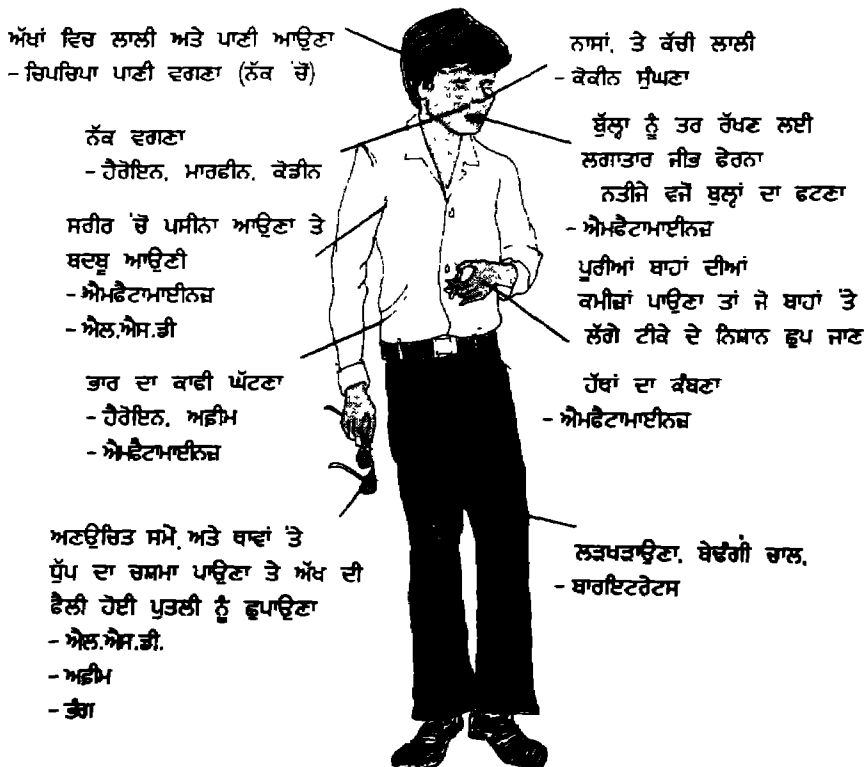 ਅੱਖਾਂ ਵਿਚ ਲਾਲੀ ਅਤੇ ਪਾਣੀ ਆਉਣਾ
– ਚਿਪਚਿਪਾ ਪਾਣੀ ਵਗਣਾ (ਨੱਕ 'ਚੋਂ)
ਨੱਕ ਵਗਣਾ
– ਹੈਰੋਇਨ, ਮਾਰਫੀਨ, ਕੋਡੀਨ
ਸਰੀਰ 'ਚੋਂ ਪਸੀਨਾ ਆਉਣਾ ਤੇ
ਬਦਬੂ ਆਉਣੀ
– ਐਮਫੈਟਾਮਾਈਨਜ਼
– ਐਲ.ਐਸ.ਡੀ
ਭਾਰ ਦਾ ਕਾਫੀ ਘੱਟਣਾ
– ਹੈਰੋਇਨ, ਅਫ਼ੀਮ
– ਐਮਫੈਟਾਮਾਈਨਜ਼
ਅਣਉਚਿਤ ਸਮੇਂ, ਅਤੇ ਥਾਵਾਂ 'ਤੇ
ਧੁੱਪ ਦਾ ਚਸ਼ਮਾ ਪਾਉਣਾ ਤੇ ਅੱਖ ਦੀ
ਫੈਲੀ ਹੋਈ ਪੁਤਲੀ ਨੂੰ ਛੁਪਾਉਣਾ
– ਐਲ.ਐਸ.ਡੀ.
– ਅਫ਼ੀਮ
– ਭੰਗ
ਨਾਸਾਂ, ਤੇ ਕੱਚੀ ਲਾਲੀ
– ਕੋਕੀਨ ਸੁੰਘਣਾ
ਬੁੱਲ੍ਹਾ ਨੂੰ ਤਰ ਰੱਖਣ ਲਈ
ਲਗਾਤਾਰ ਜੀਭ ਫੇਰਨਾ
ਨਤੀਜੇ ਵਜੋਂ ਬੁਲ੍ਹਾਂ ਦਾ ਫਟਣਾ
– ਐਮਫੈਟਾਮਾਈਨਜ਼
ਪੂਰੀਆਂ ਬਾਹਾਂ ਦੀਆਂ
ਕਮੀਜ਼ਾਂ ਪਾਉਣਾ ਤਾਂ ਜੋ ਬਾਹਾਂ 'ਤੇ
ਲੱਗੇ ਟੀਕੇ ਦੇ ਨਿਸ਼ਾਨ ਛੁਪ ਜਾਣ
ਹੱਥਾਂ ਦਾ ਕੰਬਣਾ
– ਐਮਫੈਟਾਮਾਈਨਜ਼
ਲੜਖੜਾਉਣਾ, ਬੇਢੰਗੀ ਚਾਲ,
– ਬਾਰਇਟਰੇਟਸ